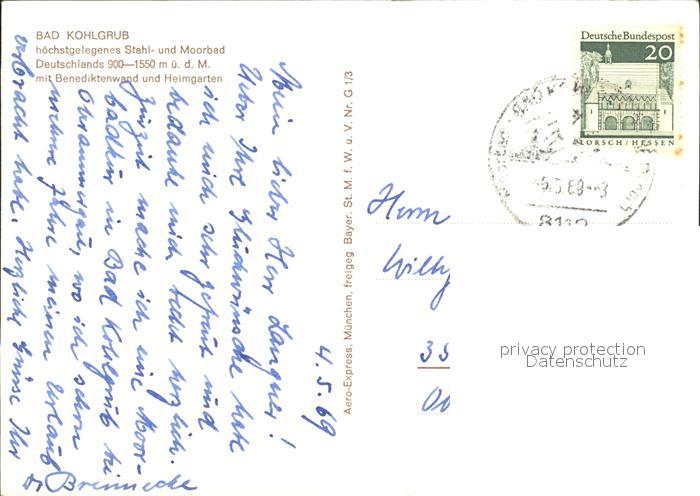 BAD KOHLGRUB
höchstgelegenes Stahl- und Moorbad
Deutschlands 900—1550 m ü. d. M.
mit Benediktenwand und Heimgarten
4. 5. 69
Mein lieber Herr Langner!
Ueber Ihre Glückwünsche habe
ich mich sehr gefreut und
bedanke mich recht herzlich.
Zurzeit mache ich eine Moor-
badkur in Bad Kohlgrub bei
Oberammergau, wo ich schon
mehrere Jahre meinen Urlaub
verbracht habe. Herzliche Grüsse Ihr
Dr Brennecke
Aero-Express, München, freigeg. Bayer. St. M. f. W. u. V. Nr. G 1/3
Deutsche Bundespost
20
LORSCH/HESSEN
-5.5.69--3
8112
Herrn
Willy
35
privacy protection
Datenschutz